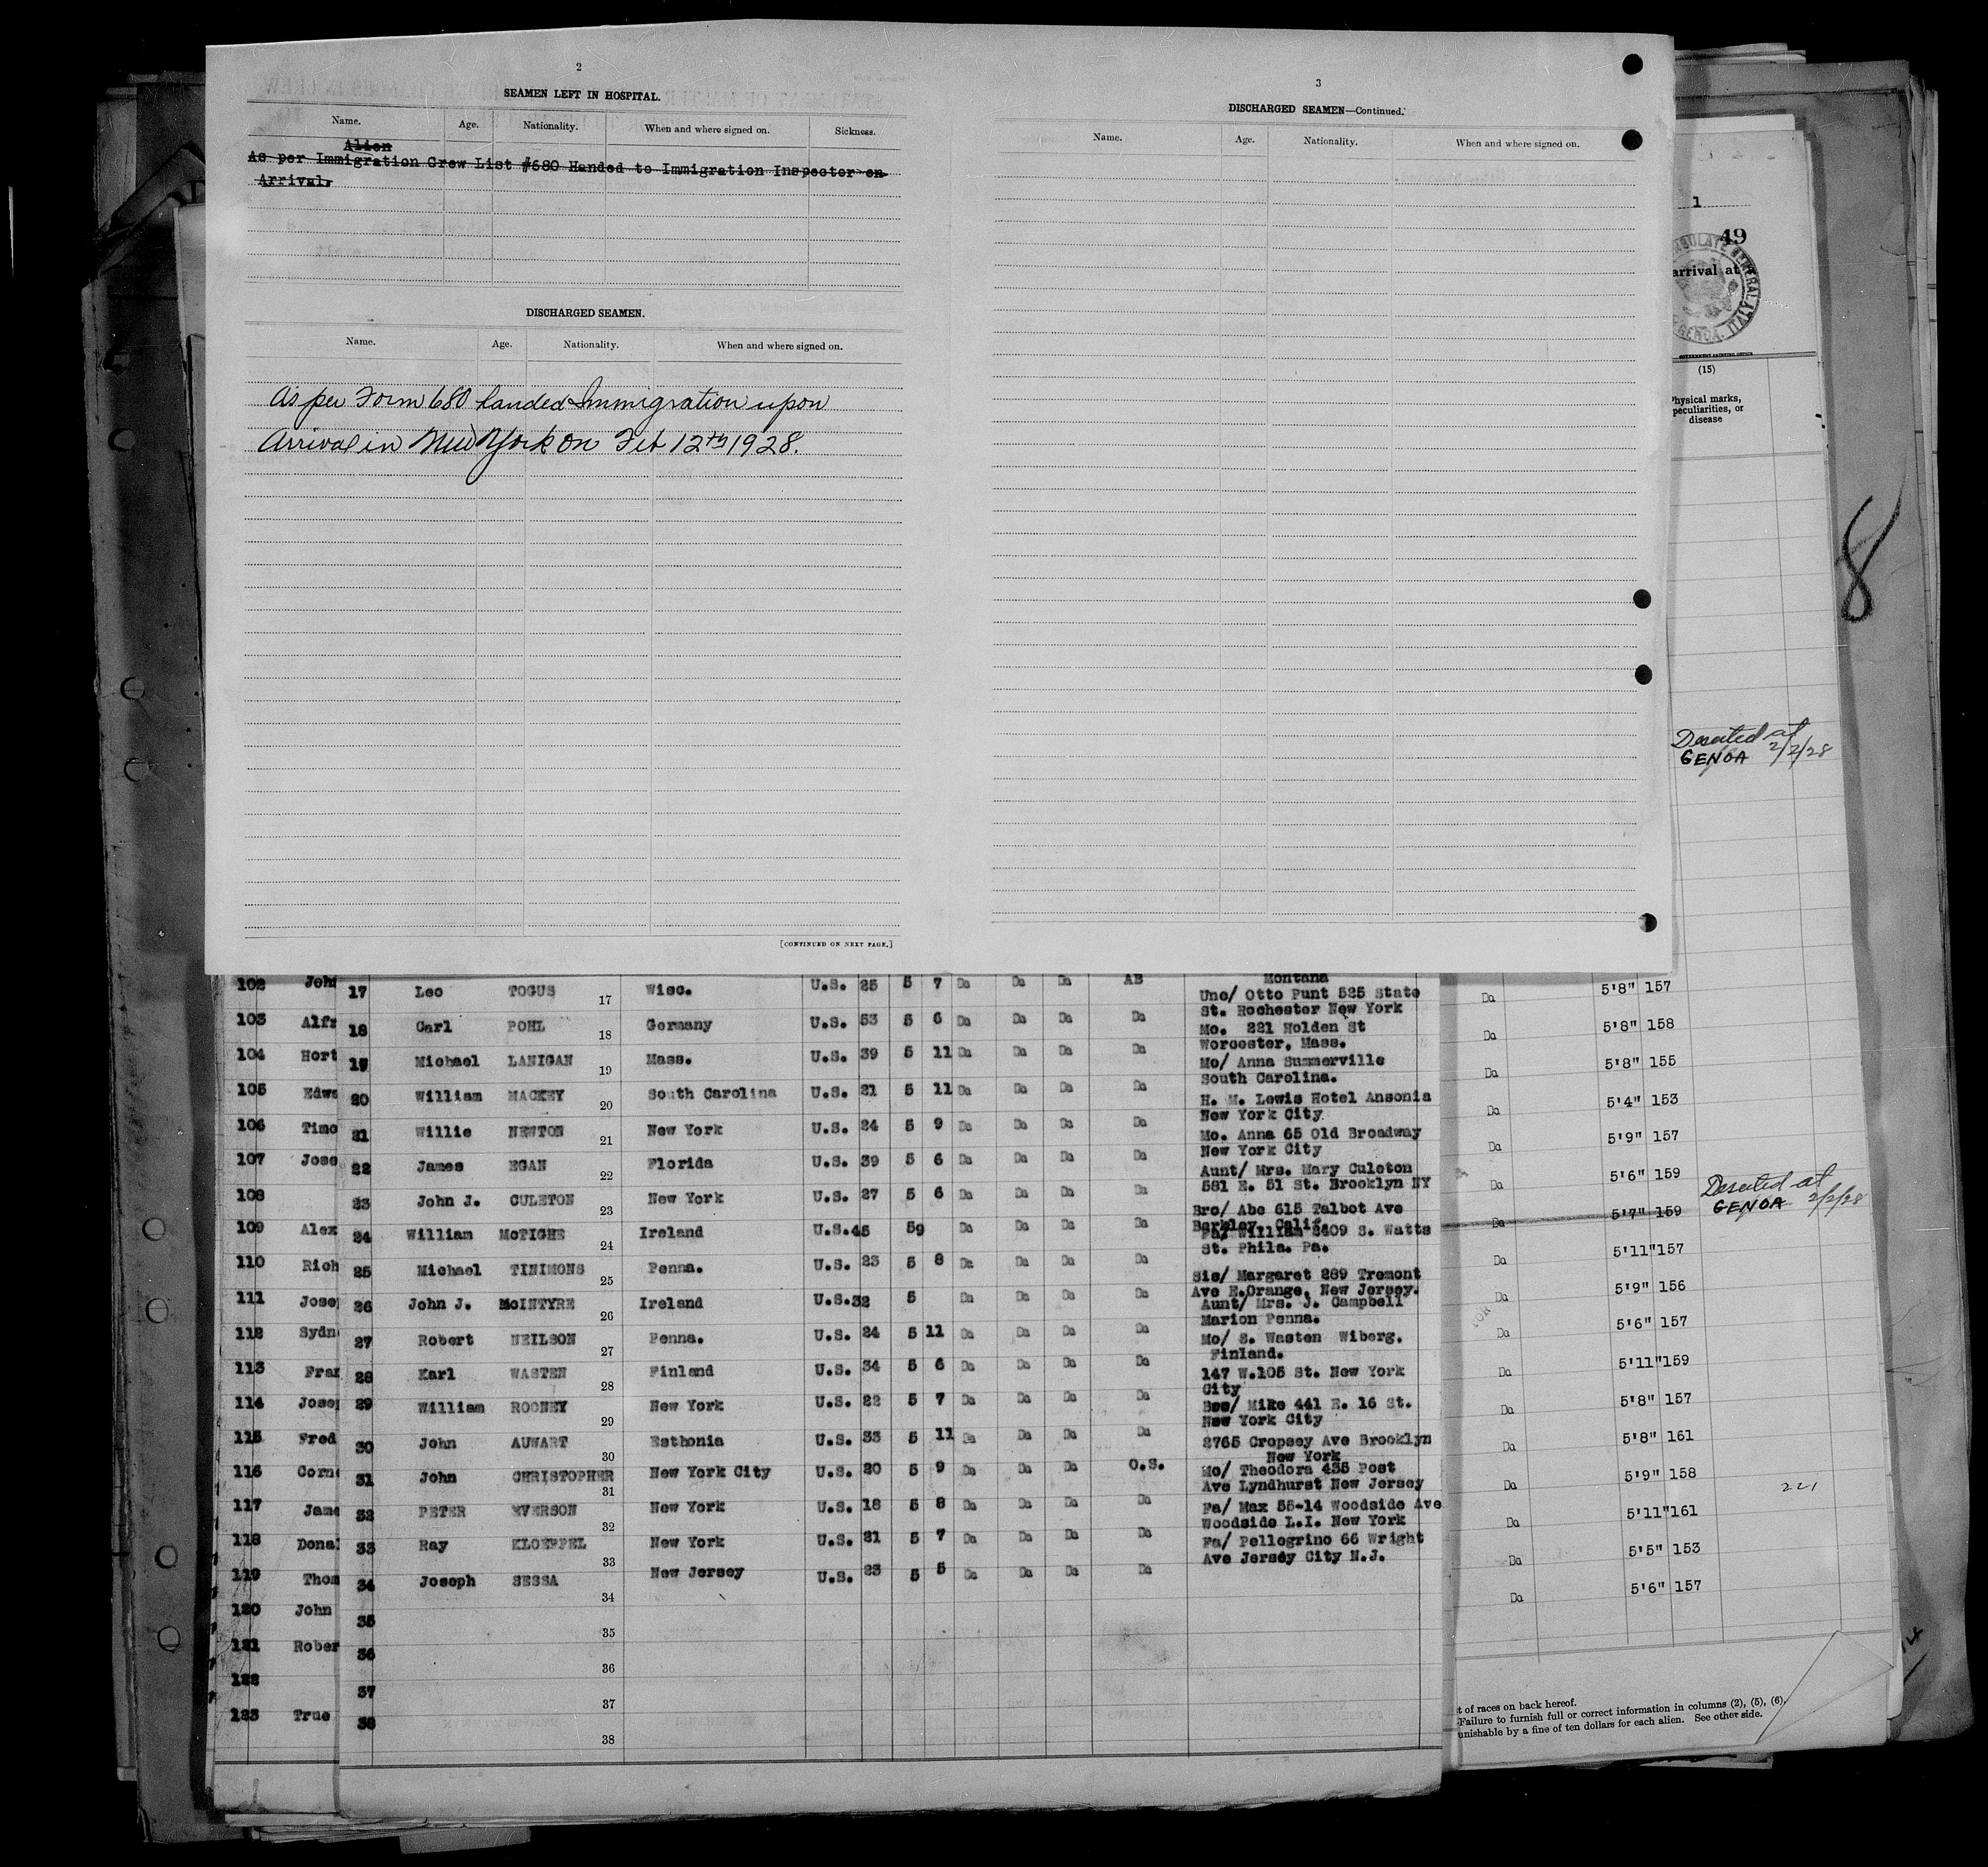 2
SEAMEN LEFT IN HOSPITAL.
Name. Age. Nationality. When and where signed on. Sickness.
Alien
As per Immigration Crew List #680 Handed to Immigration Inspector on
Arrival.
DISCHARGED SEAMEN.
Name. Age. Nationality. When and where signed on.
As per Form 680 handed Immigration upon
Arrival in New York on Feb 12th 1928.
[CONTINUED ON NEXT PAGE.]
3
DISCHARGED SEAMEN—Continued.
Name. Age. Nationality. When and where signed on.
1
49
arrival at
GENOA, ITALY
(15)
Physical marks,
peculiarities, or
disease
8
Deserted at
GENOA 2/2/28
Deserted at
GENOA 2/2/28
221
102 John
103 Alfr
104 Hort
105 Edwa
106 Timo
107 Jose
108
109 Alex
110 Rich
111 Josep
112 Sydn
113 Fran
114 Josep
115 Fred
116 Corne
117 Jame
118 Donal
119 Thom
120 John
121 Rober
122
123 True
Montana
17 Leo TOGUS 17 Wisc. U.S. 25 5 7 Do Do Do AB
Unc/ Otto Punt 525 State
St. Rochester New York
18 Carl POHL 18 Germany U.S. 53 5 6 Do Do Do Do
Mo. 221 Holden St
Worcester, Mass.
19 Michael LANIGAN 19 Mass. U.S. 39 5 11 Do Do Do Do
Mo/ Anna Summerville
South Carolina.
20 William MACKEY 20 South Carolina U.S. 21 5 11 Do Do Do Do
H. M. Lewis Hotel Ansonia
New York City
21 Willie NEWTON 21 New York U.S. 24 5 9 Do Do Do Do
Mo. Anna 65 Old Broadway
New York City
22 James EGAN 22 Florida U.S. 39 5 6 Do Do Do Do
Aunt/ Mrs. Mary Culeton
581 E. 51 St. Brooklyn NY
23 John J. CULETON 23 New York U.S. 27 5 6 Do Do Do Do
Bro/ Abe 615 Talbot Ave
Berkley, Calif.
24 William McTIGHE 24 Ireland U.S. 45 59 Do Do Do Do
Fa/ William 2409 S. Watts
St. Phila. Pa.
25 Michael TINIMONS 25 Penna. U.S. 23 5 8 Do Do Do Do
Sis/ Margaret 289 Tremont
Ave E.Orange, New Jersey.
26 John J. McINTYRE 26 Ireland U.S. 32 5 Do Do Do Do
Aunt/ Mrs. J. Campbell
Marion Penna.
27 Robert NEILSON 27 Penna. U.S. 24 5 11 Do Do Do Do
Mo/ S. Wasten Wiberg.
Finland.
28 Karl WASTEN 28 Finland U.S. 34 5 6 Do Do Do Do
147 W.105 St. New York
City
29 William ROONEY 29 New York U.S. 22 5 7 Do Do Do Do
Bro/ Mike 441 E. 16 St.
New York City
30 John AUWART 30 Esthonia U.S. 33 5 11 Do Do Do Do
2765 Cropsey Ave Brooklyn
New York
31 John CHRISTOPHER 31 New York City U.S. 20 5 9 Do Do Do O.S.
Mo/ Theodora 435 Post
Ave Lyndhurst New Jersey
32 PETER EVERSON 32 New York U.S. 18 5 8 Do Do Do Do
Fa/ Max 55-14 Woodside Ave
Woodside L.I. New York
33 Ray KLOEPPEL 33 New York U.S. 21 5 7 Do Do Do Do
Fa/ Pellegrino 66 Wright
Ave Jersey City N.J.
34 Joseph SESSA 34 New Jersey U.S. 23 5 5 Do Do Do Do
35 35
36 36
37 37
38 38
Do 5'8" 157
Do 5'8" 158
Do 5'8" 155
Do 5'4" 153
Do 5'9" 157
Do 5'6" 159
Do 5'7" 159
Do 5'11" 157
Do 5'9" 156
Do 5'6" 157
Do 5'11" 159
Do 5'8" 157
Do 5'8" 161
Do 5'9" 158
Do 5'11" 161
Do 5'5" 153
Do 5'6" 157
t of races on back hereof.
Failure to furnish full or correct information in columns (2), (5), (6),
unishable by a fine of ten dollars for each alien. See other side.